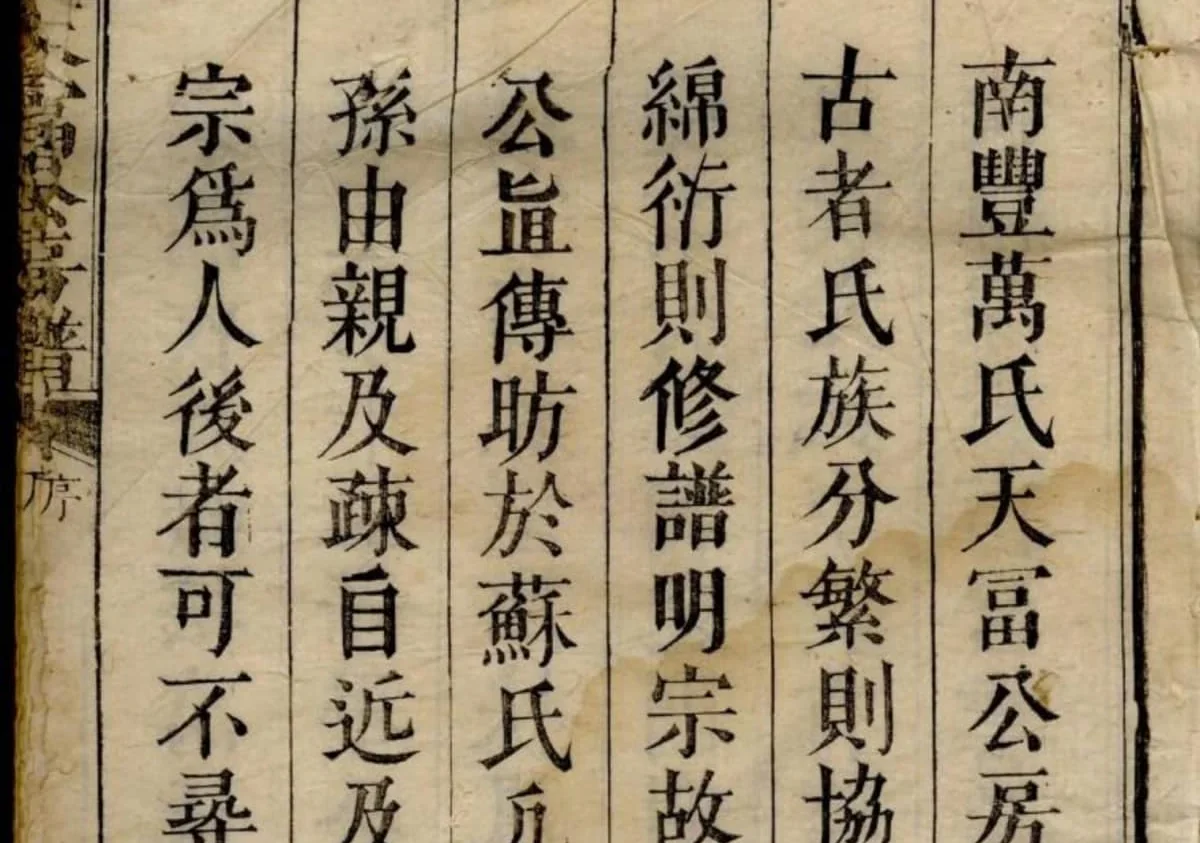 南豐萬氏天冨公房
古者氏族分繁則協
綿衍則修譜明宗故
公直傳昉於蘇氏
孫由親及疎自近及
宗爲人後者可不尋
序